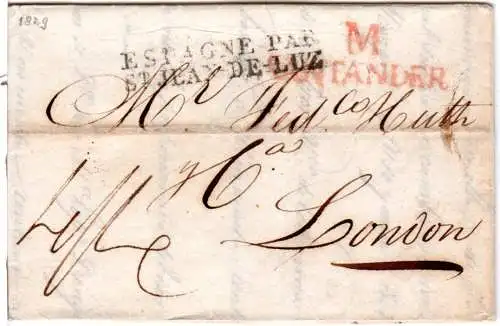 1829
ESPAGNE PAR
ST JEAN-DE-LUZ
M
SANTANDER
Mr. Fedco Huth
y Ca
London